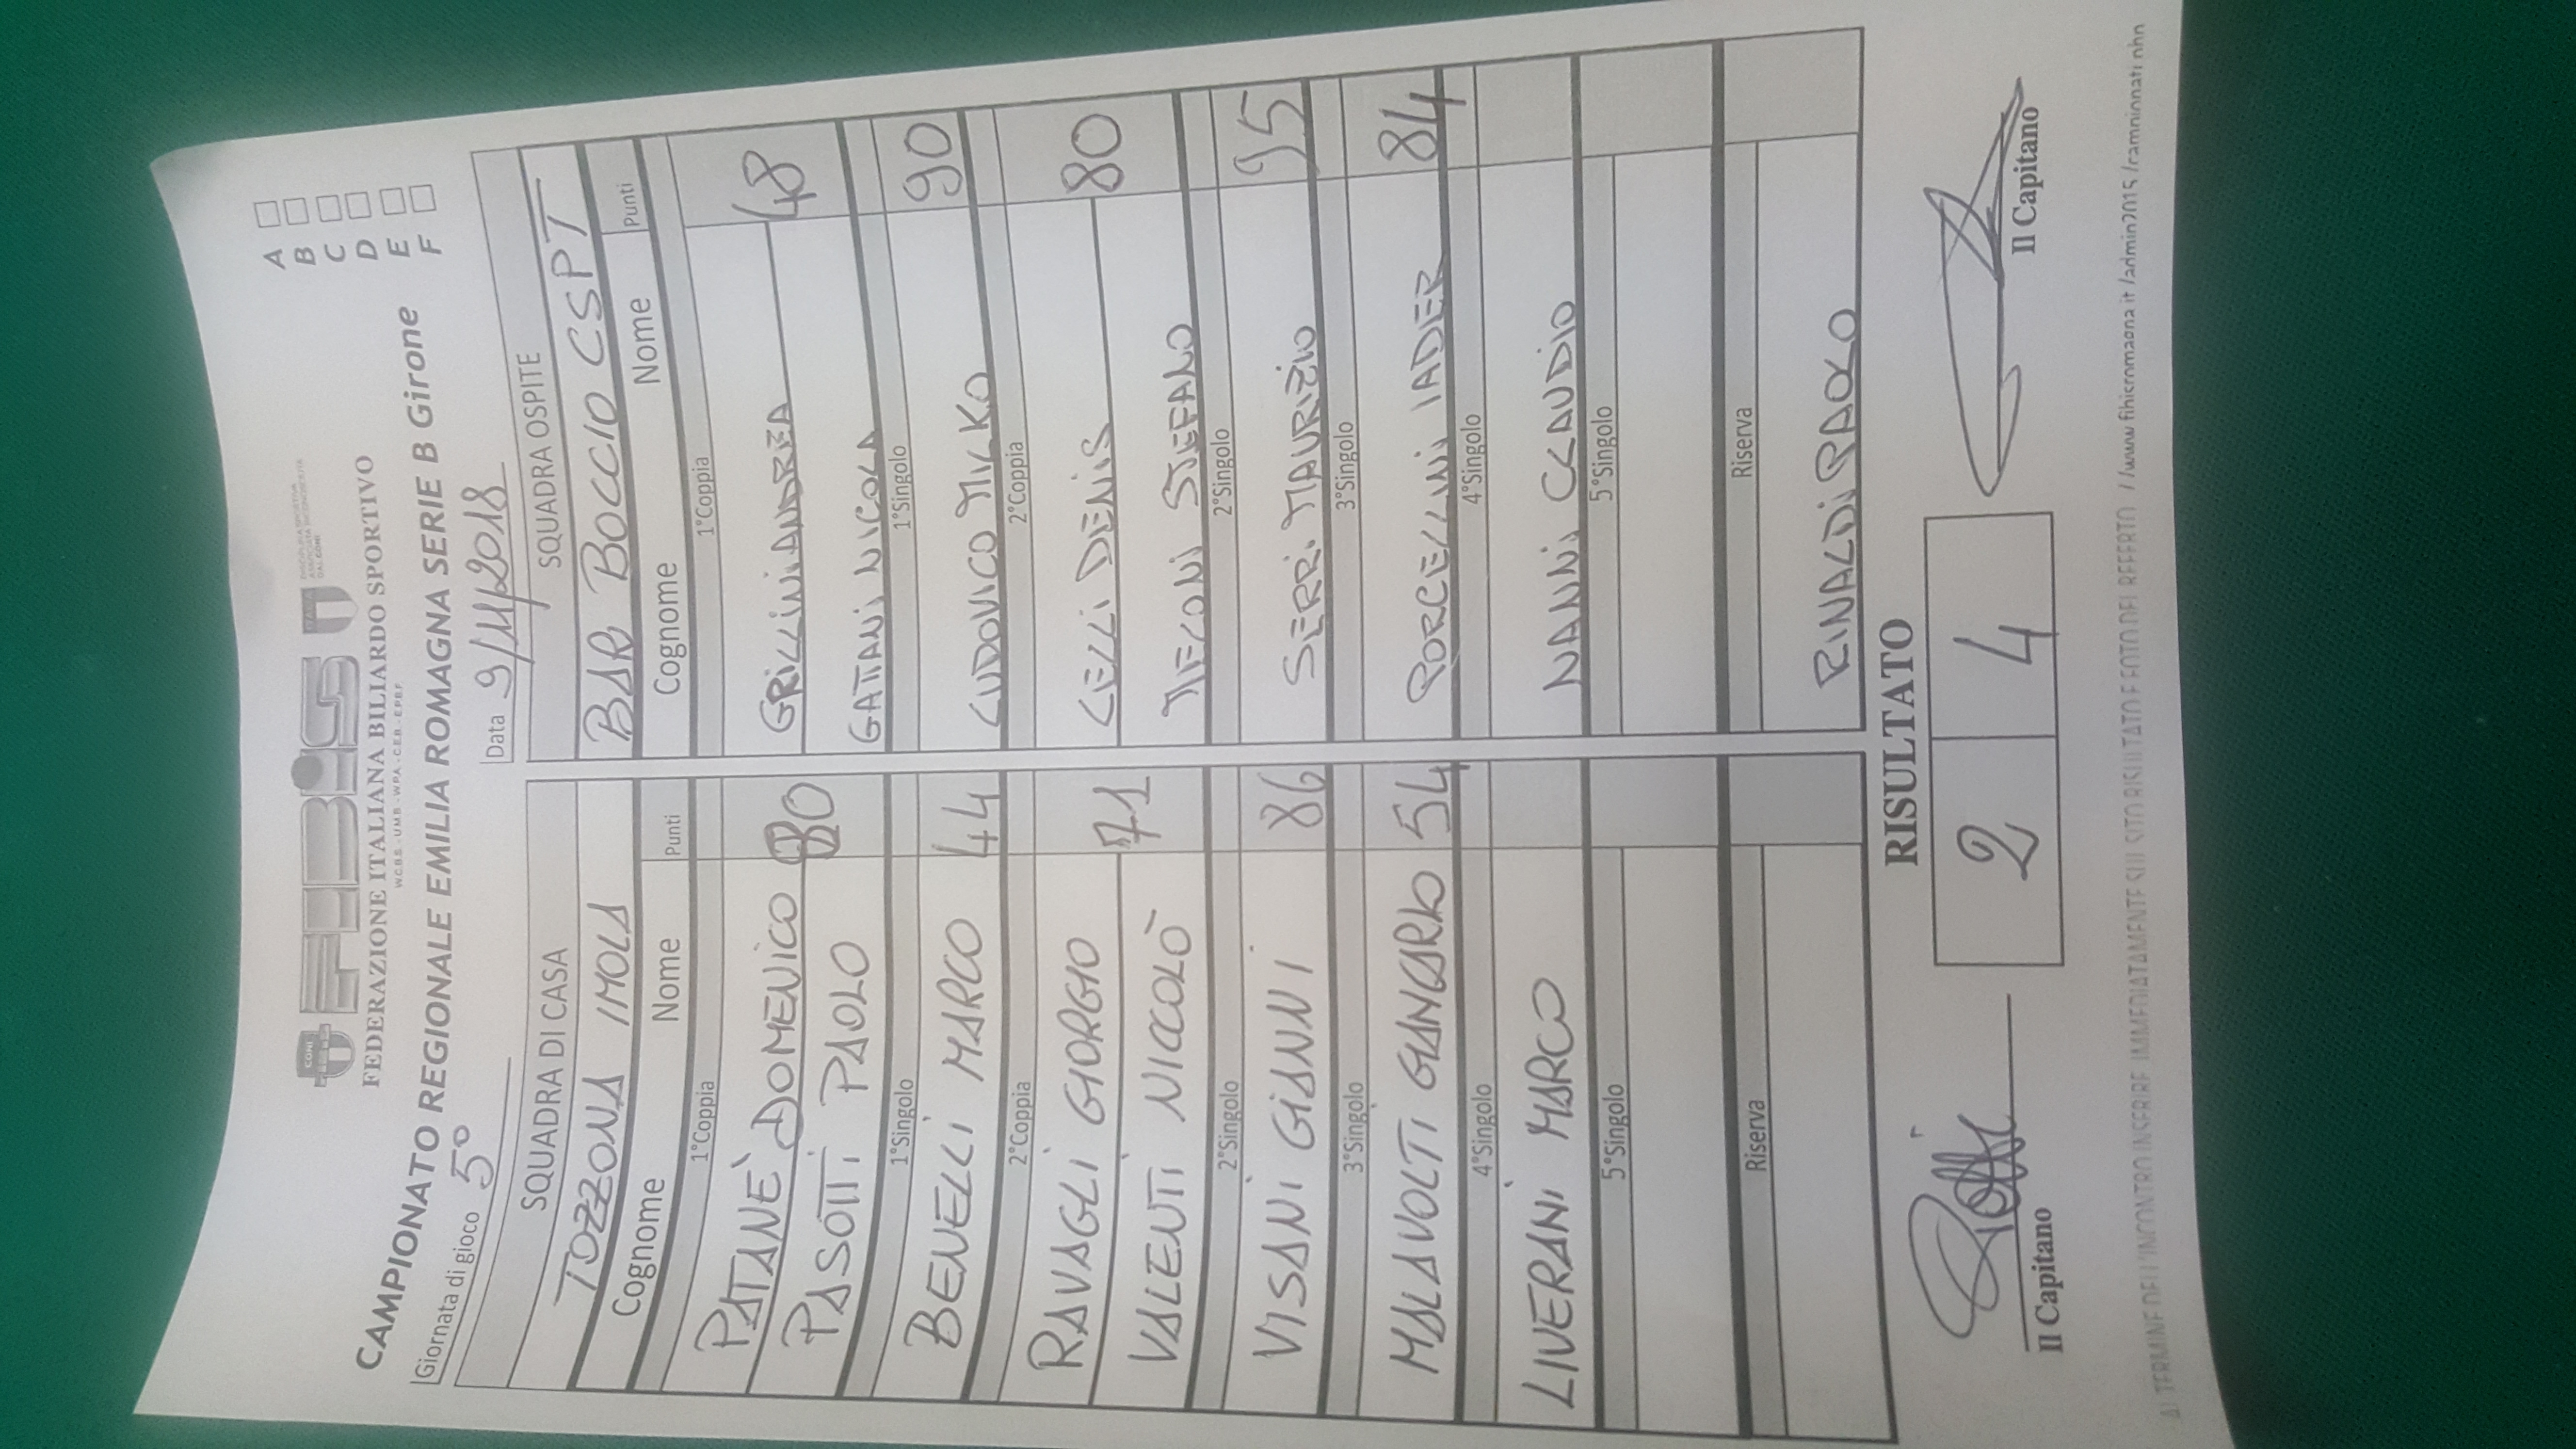 FIBiS
CONI
FEDERAZIONE ITALIANA BILIARDO SPORTIVO
W.C.B.S. - U.M.B. - W.P.A. - C.E.B. - E.P.B.F.
DISCIPLINA SPORTIVA
ASSOCIATA RICONOSCIUTA
DAL CONI
CAMPIONATO REGIONALE EMILIA ROMAGNA SERIE B Girone
A
B
C
D
E
F
Giornata di gioco 5°
Data 9/11/2018
SQUADRA DI CASA SQUADRA OSPITE
TOZZONA IMOLA BAR BOCCIO CSPT
Cognome Nome Punti Cognome Nome Punti
1°Coppia 1°Coppia
PATANÈ DOMENICO 80 GRILLINI ANDREA 48
PASOTTI PAOLO GATTANI NICOLA
1°Singolo 1°Singolo
BENELLI MARCO 44 LUDOVICO MILKO 90
2°Coppia 2°Coppia
RAVAGLI GIORGIO 71 CELLI DENIS 80
VALENTI NICCOLÒ STEFANO
2°Singolo 2°Singolo
VISANI GIANNI 86 SERRI MAURIZIO 95
3°Singolo 3°Singolo
MALAVOLTI GIANCARLO 54 PORCELLINI IADER 84
4°Singolo 4°Singolo
LIVERANI MARCO NANNI CLAUDIO
5°Singolo 5°Singolo
Riserva Riserva
RINALDI PAOLO
RISULTATO
2 4
Il Capitano Il Capitano
AL TERMINE DELL'INCONTRO INSERIRE IMMEDIATAMENTE SUL SITO RISULTATO E FOTO DEL REFERTO //www.fibisromagna.it/admin2015/campionati.php